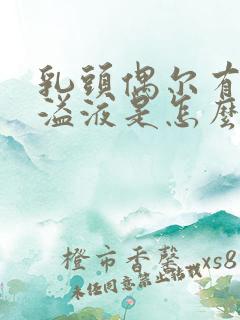 乳頭偶尔有
溢液是怎麽
橙市香馨 xs8
未经同意禁止转载